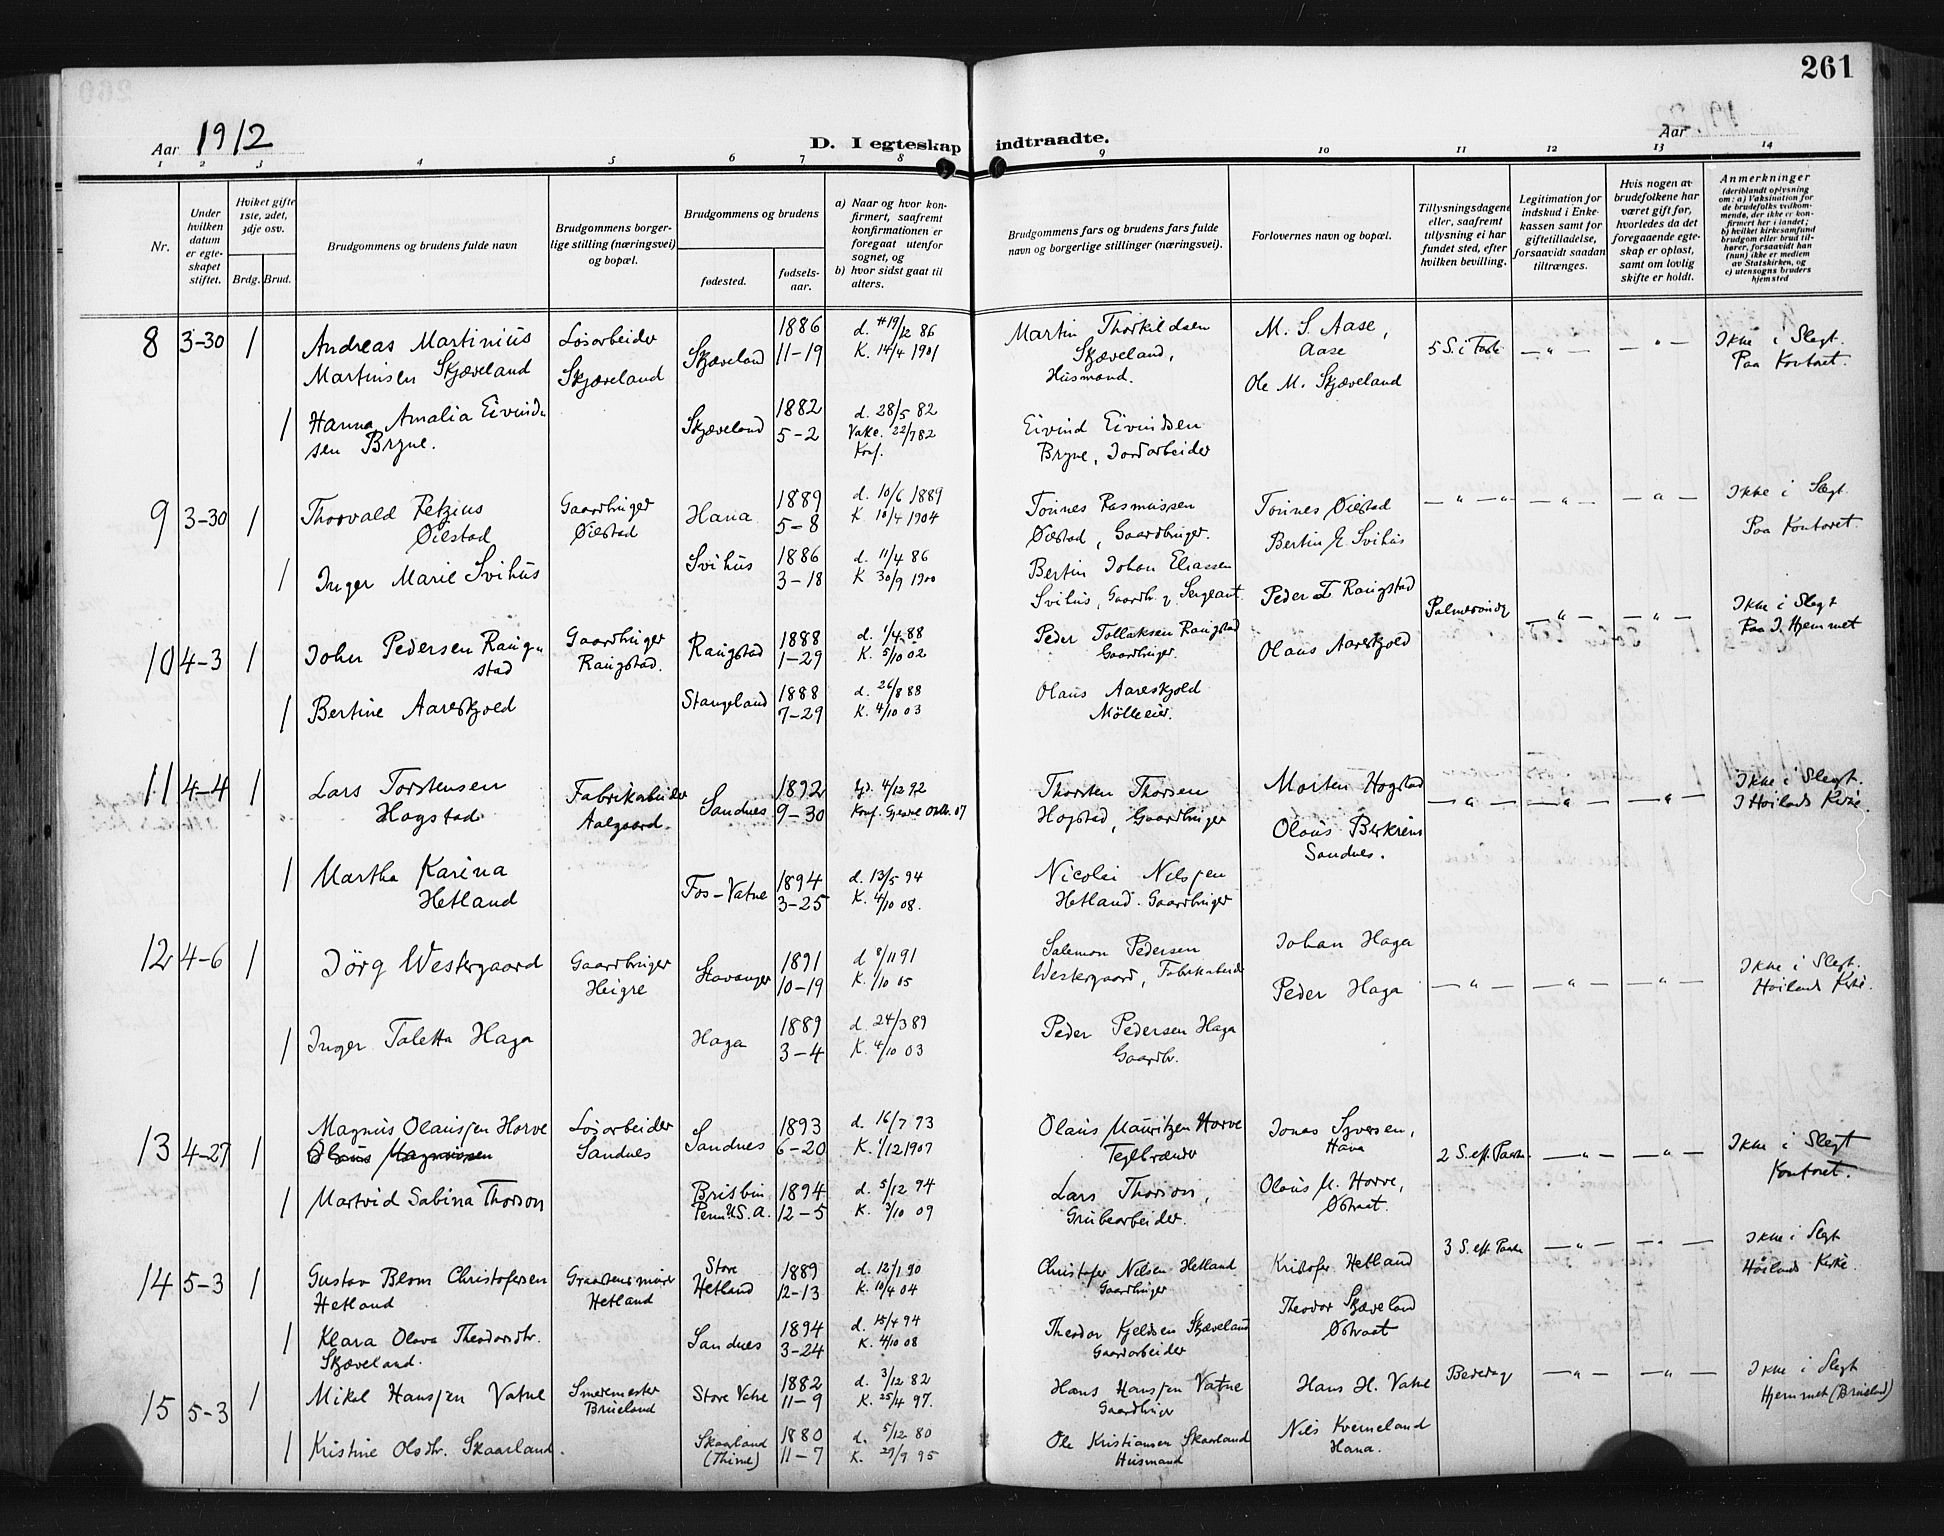 261
Aar 1912
D. I egteskap indtraadte.
Aar
1 2 3 4 5 6 7 8 9 10 11 12 13 14
Nr.
Under hvilken datum er egteskapet stiftet.
Hviket gifte 1ste, 2det, 3dje osv.
Brdg. Brud.
Brudgommens og brudens fulde navn
Brudgommens borgerlige stilling (næringsvei) og bopæl.
Brudgommens og brudens
fødested.
fødselsaar.
a) Naar og hvor konfirmert, saafremt konfirmationen er foregaat utenfor sognet, og
b) hvor sidst gaat til alters.
Brudgommens fars og brudens fars fulde navn og borgerlige stillinger (næringsvei).
Forlovernes navn og bopæl.
Tillysningsdagene eller, saafremt tillysning ei har fundet sted, efter hvilken bevilling.
Legitimation for indskud i Enkekassen samt for giftetilladelse, forsaavidt saadan tiltrænges.
Hvis nogen av brudefolkene har været gift før, hvorledes da det foregaaende egteskap er opløst, samt om lovlig skifte er holdt.
Anmerkninger
(deriblandt oplysning om: a) Vaksination for de brudefolks vedkommende, der ikke er konfirmert her i landet; b) hvilket kirkesamfund brudgom eller brud tilhører, forsaavidt han (hun) ikke er medlem av Statskirken, og c) utensogns bruders hjemsted
8 3-30 1 Andreas Martinius Løsarbeider 1886 d. 19/12 86 Martin Thorkildsen M. S. Aase, Ikke i Slegt.
Martinsen Skjæveland Skjæveland Skjæveland 11-19 K. 14/4 1901 Skjæveland, Aase 5 S. i Faste — " — — " — Paa Kontoret.
Husmand. Ole M. Skjæveland
1 Hanna Amalia Eivind- Skjæveland 1882 d. 28/5 82 Eivind Eivindsen
sen Bryne. 5-2 Vakc. 22/7 82 Bryne, Jordarbeider
Konf.
9 3-30 1 Thorvald Øiestad Gaardbruger Hana 1889 d. 10/6 1889 Tønnes Rasmussen Tønnes Øiestad — " — — " — — " — Ikke i Slegt.
Øiestad 5-8 K 10/4 1904 Øiestad, Gaardbruger. Bertin E. Svihus Paa Kontoret
1 Inger Marie Svihus Svihus 1886 d. 11/4 86 Bertin Johan Eliassen
3-18 K 30/9 1900 Svihus, Gaardb. og Sergeant
10 4-3 1 Johan Pedersen Raug- Gaardbruger Raugstad 1888 d. 1/4 88 Peder Tollaksen Raugstad Peder T Raugstad Palmesøndg — " — — " — Ikke i Slegt
stad Raugstad. 1-29 K. 5/10 02 Gaardbruger. Olaus Aareskjold Paa I. Hjemmet
1 Bertine Aareskjold Stangeland 1888 d. 26/8 88 Olaus Aareskjold
7-29 K. 4/10 03 Mølleeier.
11 4-4 1 Lars Torstensen Fabrikabeider Sandnes 1892 d. 4/12 92 Thorsten Thorsen Morten Hogstad — " — — " — — " — Ikke i Slegt.
Hogstad Aalgaard. 9-30 Konf. Gjesdal Oktb. 07 Hogstad, Gaardbruger Olaus Berkreim I Høilands Kirke.
Sandnes.
1 Martha Karina Fos-Vatne 1894 d. 13/5 94 Nicolai Nilsjen
Hetland 3-25 K. 4/10 08. Hetland. Gaardbruger
12 4-6 1 Jörg Westergaard Gaardbruger Stavanger 1891 d 8/11 91 Salemon Pedersen Johan Haga — " — — " — — " — Ikke i Slegt.
Heigre 10-19 K. 1/10 05 Westergaard, Fabrikabeider Peder Haga Høilands Kirke.
1 Inger Taletta Haga Haga 1889 d. 24/3 89 Peder Pedersen Haga
3-4 K. 4/10 03 Gaardbr.
13 4-27 1 Magnus Olausjen Horve Løsarbeider Sandnes 1893 d. 16/7 93 Olaus Mauritzen Horve Jonas Syversen, 2 S. eft. Paaske — " — — " — Ikke i Slegt
Olaus Magnussen Sandnes 6-20 K. 1/12 1907 Teglbrænder Hana Kontoret.
1 Martvid Sabina Thorson Brisbin 1894 d. 5/12 94 Lars Thorson, Olaus M. Horve,
Penn U.S.A. 12-5 K. 3/10 09 Grubearbeider. Østraat.
14 5-3 1 Gustav Blom Christofersen Graastensmurer Store 1889 d. 12/1 90 Christofer Nilsen Hetland Kristofer Hetland 3 S. eft. Paaske — " — — " — Ikke i Slegt
Hetland Hetland Hetland 12-13 K. 10/4 04 Gaardbruger Høilands Kirke.
1 Klara Olava Theodorsdtr. Sandnes 1894 d. 15/4 94 Theodor Kjeldsen Skjæveland Theodor Skjæveland
Skjæveland. 3-24 K. 4/10 08 Gaardarbeider Østraat
15 5-3 1 Mikal Hansjen Vatne Smedmester Store Vatne 1882 d. 3/12 82 Hans Hansjen Vatne Hans H. Vatne Bededag — " — — " — Ikke i Slegt
Brueland 11-9 K. 25/4 97. Gaardbruger Hjemmet (Brueland)
1 Kristine Olsdtr. Skaarland. Skaarland 1880 d. 5/12 80 Ole Kristiansen Skaarland Nils Kverneland
(Thime) 11-7 K. 29/9 95 Husmand Hana.